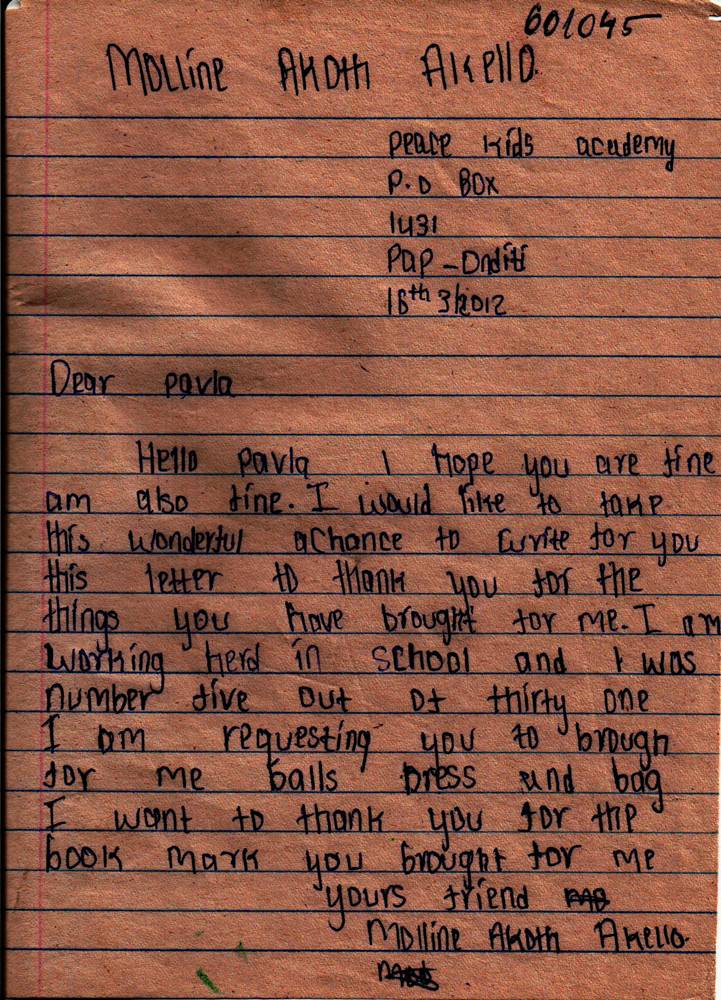 601045
Molline Akoth Akello.
peace kids academy
P.O BOX
1431
Pap - Onditi
16th 3/2012
Dear pavla
Hello pavla I hope you are fine
am also fine. I would like to take
this wonderful achance to write for you
this letter to thank you for the
things you have brought for me. I am
working herd in school and I was
number five out of thirty one
I am requesting you to brough
for me balls Dress and bag
I want to thank you for the
book mark you brought for me
yours friend
Molline Akoth Akello.